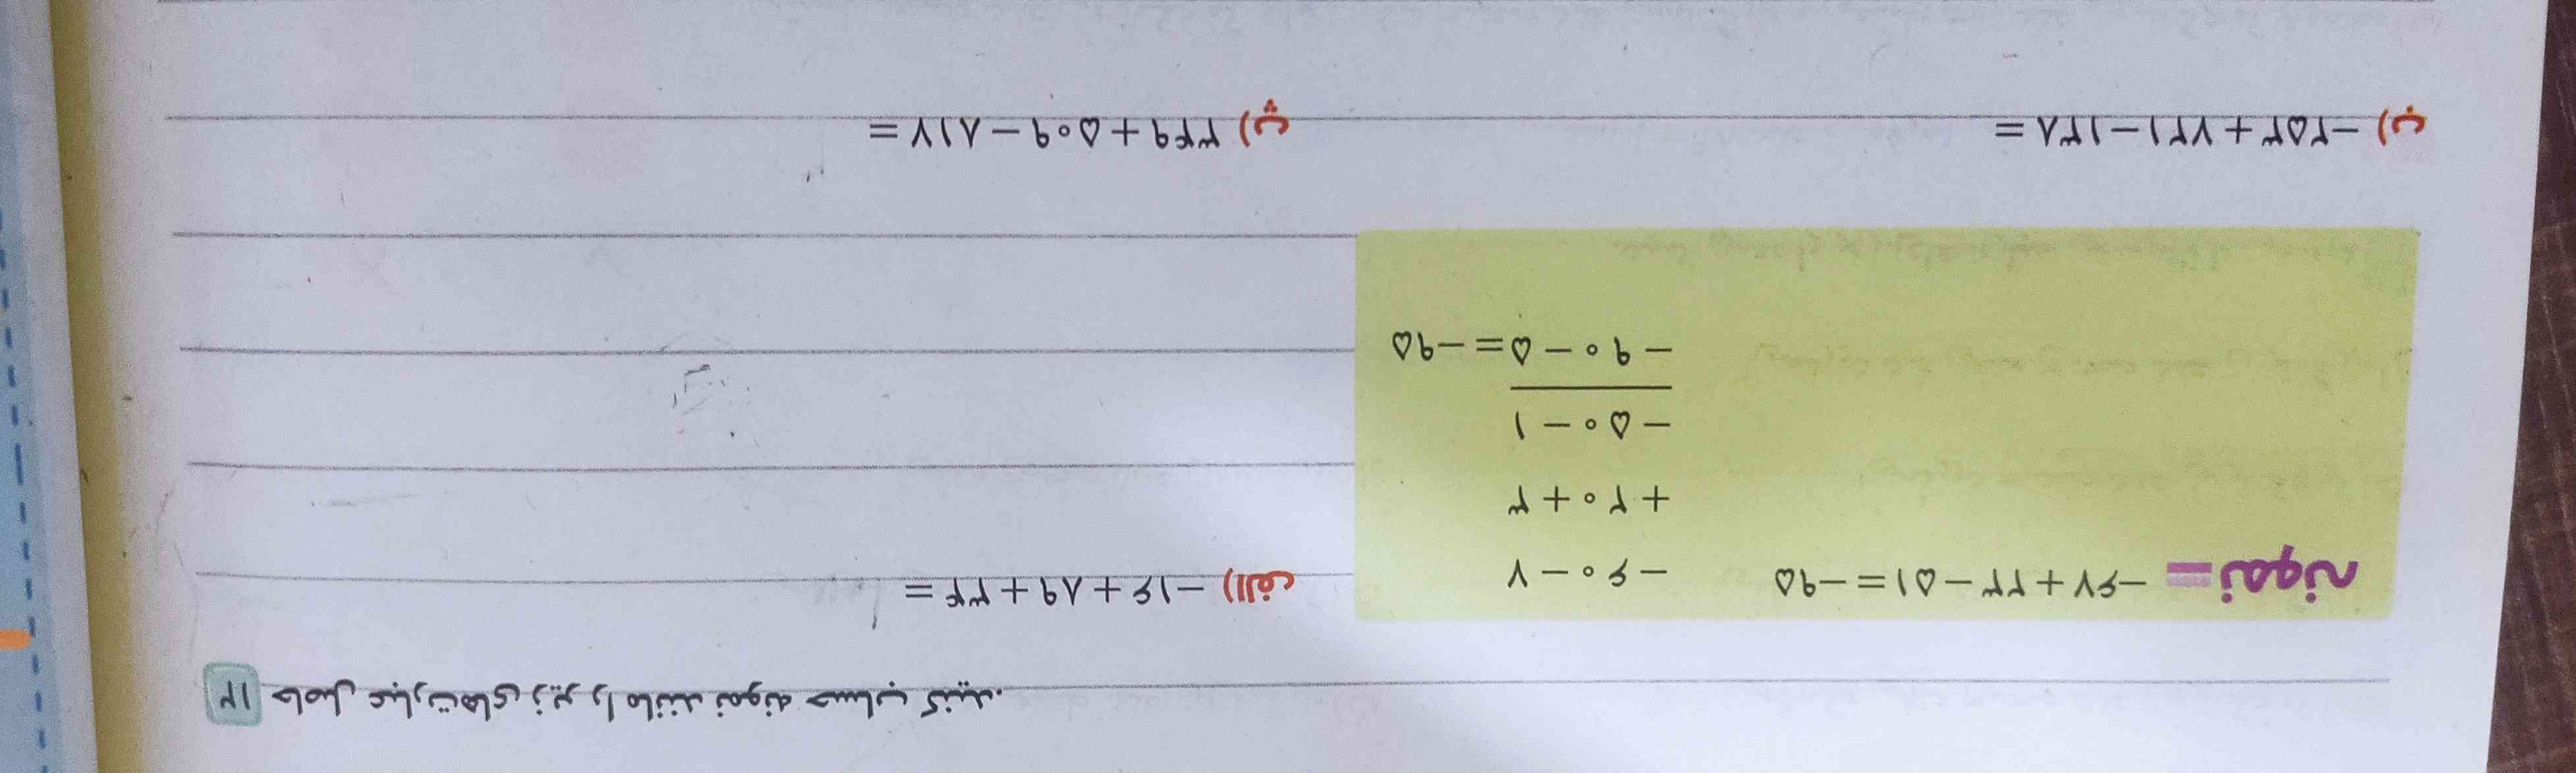 ۱۳ حاصل عبارت‌های زیر را مانند نمونه حساب کنید.
نمونه −۶۷+۲۳−۵۱=−۹۵
−۶۰−۷
+۲۰+۳
−۵۰−۱
−۹۰−۵=−۹۵
الف) −۱۶+۸۹+۳۴=
ب) −۲۵۳+۷۲۱−۱۳۸=
پ) ۳۴۹+۵۰۹−۸۱۷=